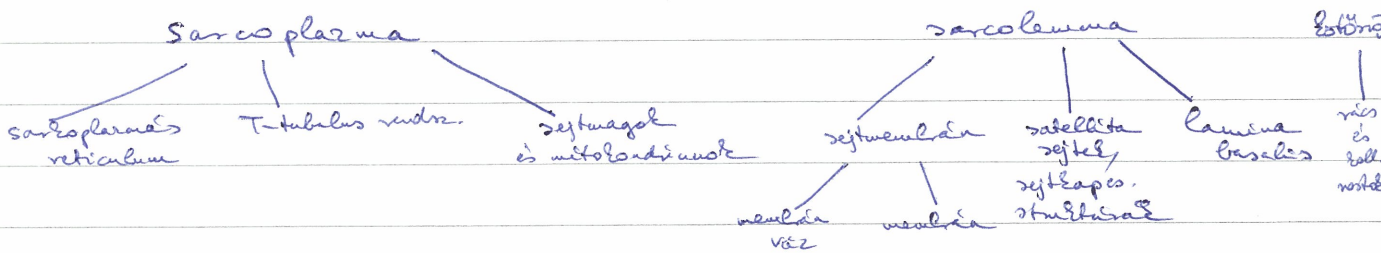 sarcoplazma sarcolemma
sarkoplazmás reticulum T-tubulus rendsz. sejtmagok és mitokondriumok sejtmembrán satellita sejtek, sejtkapcs. struktúrák lamina basalis rács és
membrán váz membrán